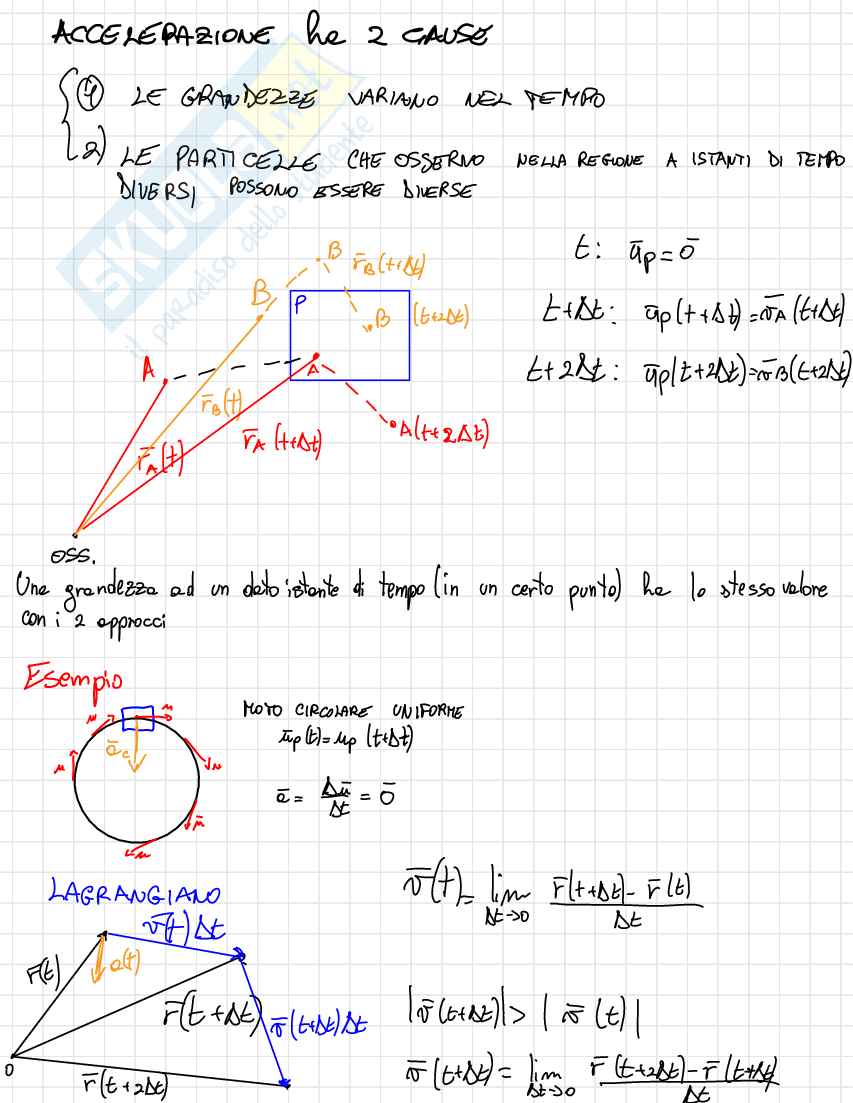 ACCELERAZIONE ha 2 CAUSE
1) LE GRANDEZZE VARIANO NEL TEMPO
2) LE PARTICELLE CHE OSSERVO NELLA REGIONE A ISTANTI DI TEMPO
DIVERSI POSSONO ESSERE DIVERSE
SKUOLA.net
il paradiso dello studente
t: ū_P = ō
t+Δt: ū_P(t+Δt) = v̄_A(t+Δt)
t+2Δt: ū_P(t+2Δt) = v̄_B(t+2Δt)
B r̄_B(t+Δt)
B
P
B (t+2Δt)
A
A
r̄_B(t)
r̄_A(t)
r̄_A(t+Δt)
A(t+2Δt)
OSS.
Una grandezza ad un dato istante di tempo (in un certo punto) ha lo stesso valore
con i 2 approcci
Esempio
MOTO CIRCOLARE UNIFORME
ū_P(t) = u_P(t+Δt)
ā = Δū/Δt = ō
ā_c
u
u
u
u
ū
u
LAGRANGIANO
v̄(t) = lim Δt→0 (r̄(t+Δt) - r̄(t))/Δt
v̄(t)Δt
r̄(t)
a(t)
r̄(t+Δt)
v̄(t+Δt)Δt
|v̄(t+Δt)| > |v̄(t)|
O
r̄(t+2Δt)
v̄(t+Δt) = lim Δt→0 (r̄(t+2Δt) - r̄(t+Δt))/Δt